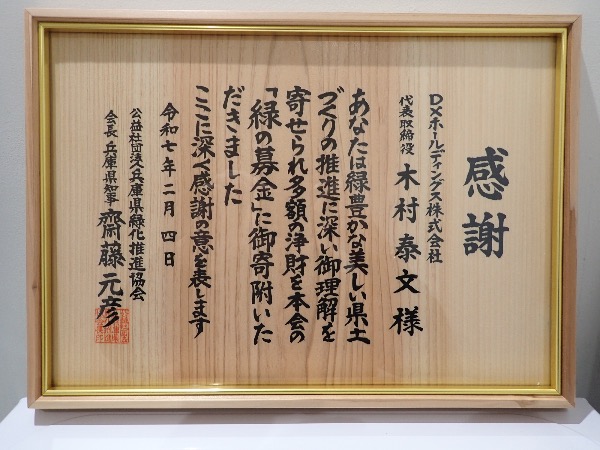 感謝
DXホールディングス株式会社
代表取締役 木村泰文様
あなたは緑豊かな美しい県土
づくりの推進に深い御理解を
寄せられ多額の浄財を本会の
「緑の募金」に御寄附いた
だきました
ここに深く感謝の意を表します
令和七年二月四日
公益社団法人兵庫県緑化推進協会
会長 兵庫県知事 齋藤元彦